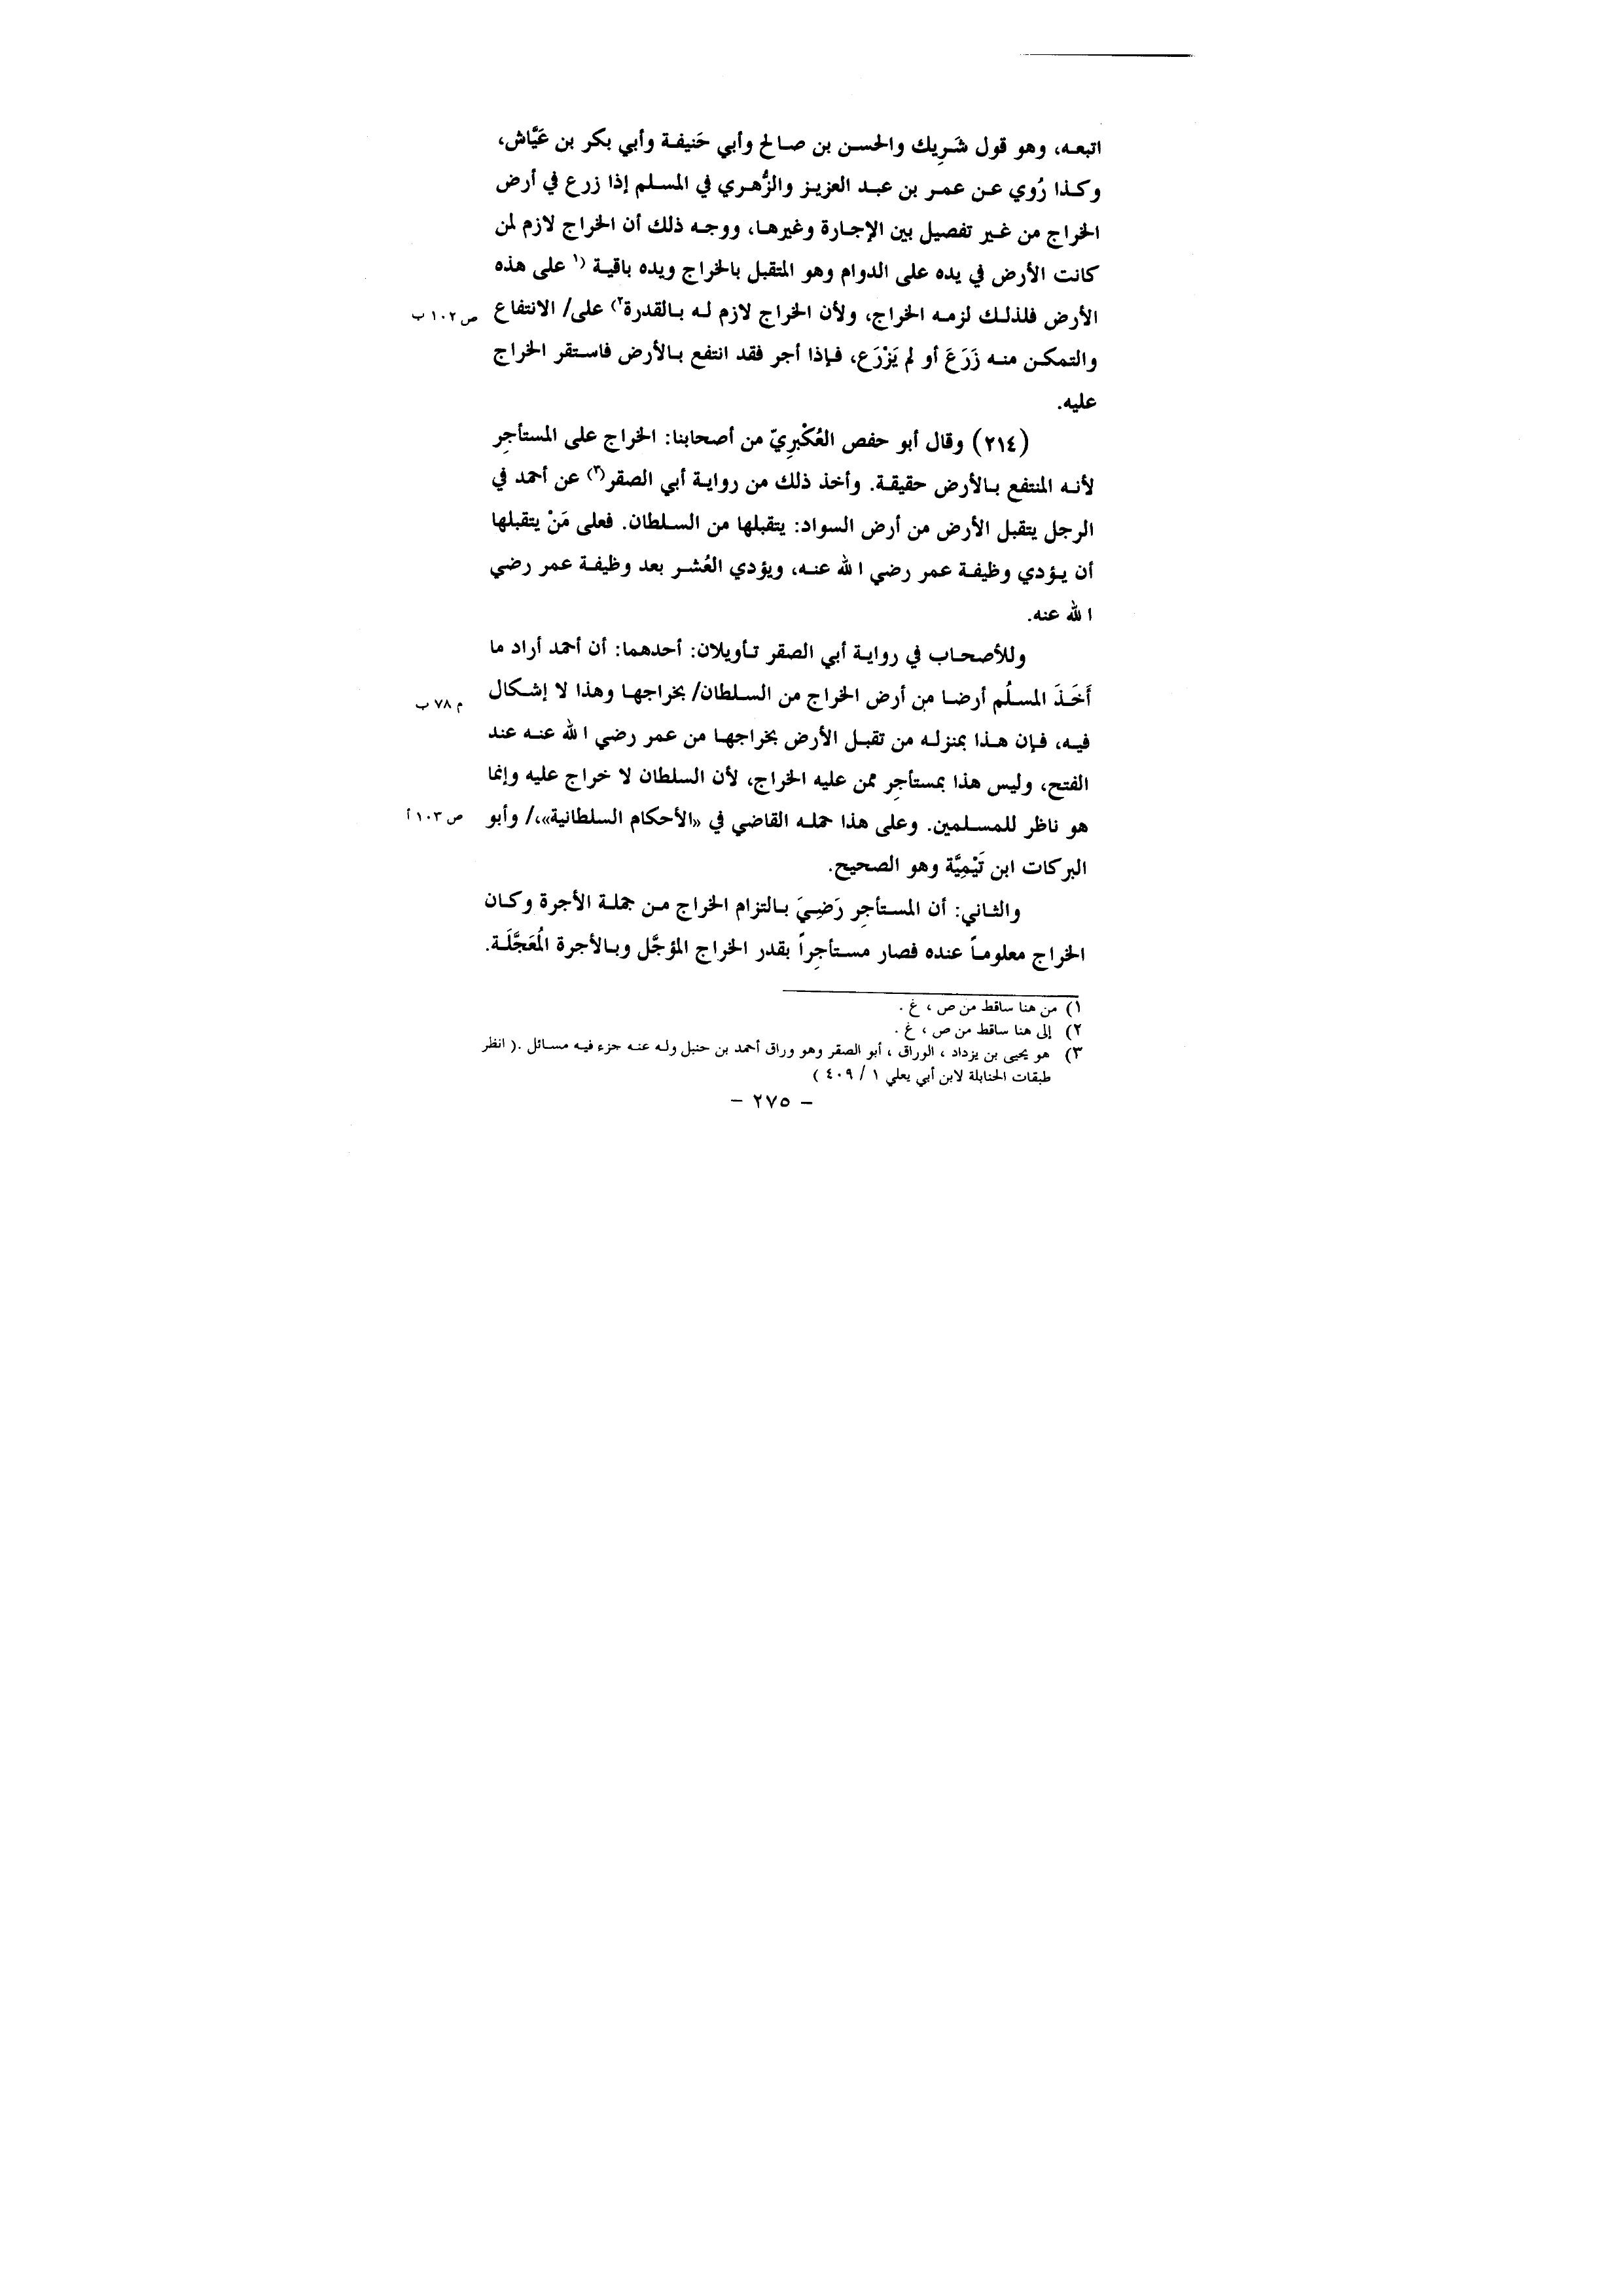 اتبعـه، وهو قول شَـرِيك والحسـن بن صـالح وأبي حَنيفـة وأبي بكر بن عَيَّاش،
وكـذا رُوي عـن عمـر بن عبـد العزيـز والزُّهـري في المسـلم إذا زرع في أرض
الخراج من غـير تفصيل بين الإجـارة وغيرهـا، ووجـه ذلك أن الخراج لازم لمن
كانت الأرض في يده على الدوام وهو المتقبل بالخراج ويده باقيـة (١ على هذه
الأرض فلذلـك لزمـه الخراج، ولأن الخراج لازم لـه بـالقدرة٢) على/ الانتفاع
ص ١٠٢ ب
والتمكـن منـه زَرَعَ أو لم يَزْرَع، فـإذا أجر فقد انتفع بـالأرض فاسـتقر الخراج
عليه.
(٢١٤) وقال أبو حفص العُكْبرِيّ من أصحابنا: الخراج على المستأجِر
لأنـه المنتفع بـالأرض حقيقـة. وأخذ ذلك من روايـة أبي الصقر(٣) عن أحمد في
الرجل يتقبل الأرض من أرض السواد: يتقبلها من السـلطان. فعلى مَنْ يتقبلها
أن يـؤدي وظيفـة عمر رضي الله عنـه، ويؤدي العُشـر بعد وظيفـة عمر رضي
الله عنه.
وللأصحـاب في روايـة أبي الصقر تـأويلان: أحدهمـا: أن أحمد أراد ما
أَخَـذَ المسـلُم أرضـا من أرض الخراج من السـلطان/ بخراجهـا وهذا لا إشـكال
م ٧٨ ب
فيـه، فـإن هـذا بمنزلـه من تقبـل الأرض بخراجهـا من عمر رضي الله عنـه عند
الفتح، وليس هذا بمستأجِر ممن عليه الخراج، لأن السلطان لا خراج عليه وإنما
هو ناظر للمسـلمين. وعلى هذا حملـه القاضي في «الأحكام السلطانية»،/ وأبو
ص ١٠٣ أ
البركات ابن تَيْمِيَّة وهو الصحيح.
والثـاني: أن المسـتأجِر رَضِـيَ بـالتزام الخراج مـن جملـة الأجرة وكـان
الخراج معلومـاً عنده فصار مسـتأجِراً بقدر الخراج المؤجَّل وبـالأجرة المُعَجَّلَـة.
١) من هنا ساقط من ص ، غ .
٢) إلى هنا ساقط من ص ، غ .
٣) هو يحيى بن يزداد ، الوراق ، أبو الصقر وهو وراق أحمد بن حنبل ولـه عنـه جزء فيـه مسـائل .( انظر
طبقات الحنابلة لابن أبي يعلي ١ / ٤٠٩ )
– ٢٧٥ –